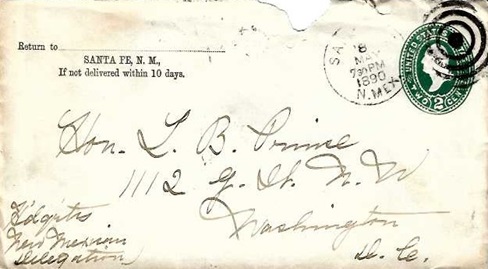 Return to
SANTA FE, N. M.,
If not delivered within 10 days.
SA
8
MA
7 PM
1890
N. MEX
UNITED STATES
TWO CENTS
2
Hon. L. B. Prince
1112 G. St. N. W
Washington
D. C.
Hdqrtrs
New Mexican
Delegation